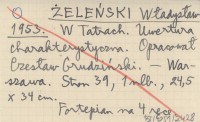 O ŻELEŃSKI Władysław
1953. W Tatrach. Uwertura
charakterystyczna. Opracował
Czesław Grudziński. — War-
szawa. Stron 39, 1 nlb., 24,5
x 34 cm.
Fortepian na 4 ręce